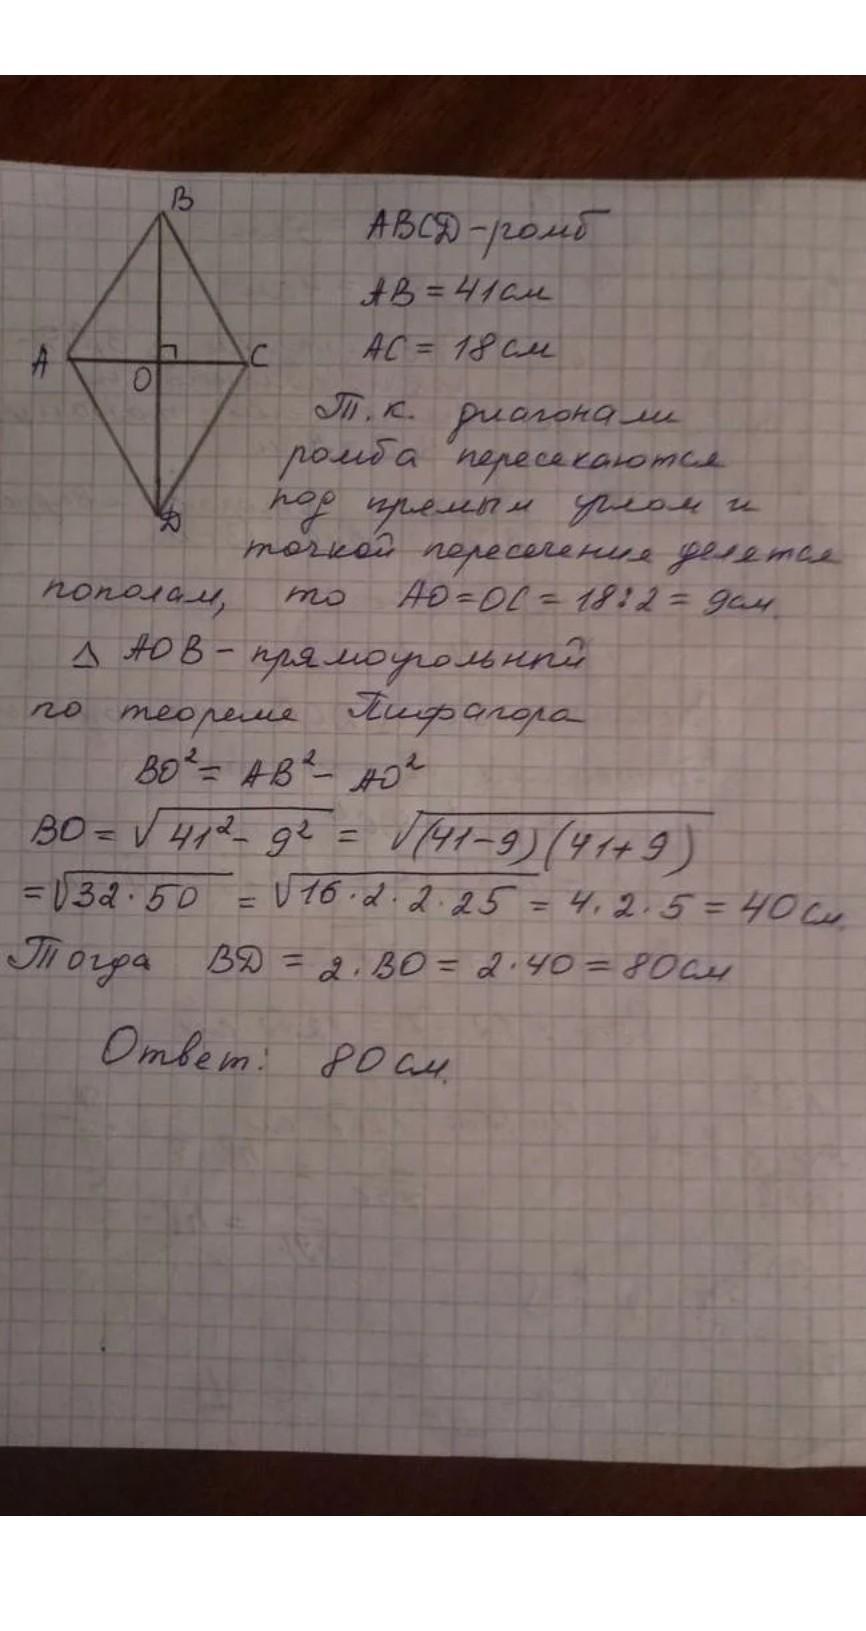 B
ABCD - ромб
AB = 41 см
A
C
AC = 18 см
O
Т.к. диагонали
ромба пересекаются
под прямым углом и
D
точкой пересечения делятся
пополам, то AO = OC = 18 : 2 = 9 см.
△ AOB - прямоугольный
по теореме Пифагора
BO² = AB² - AO²
BO = √(41² - 9²) = √((41-9)(41+9))
= √(32 · 50) = √(16 · 2 · 2 · 25) = 4 · 2 · 5 = 40 см.
Тогда BD = 2 · BO = 2 · 40 = 80 см
Ответ: 80 см.